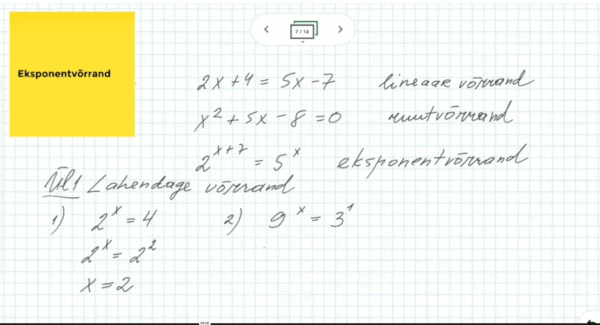 Eksponentvõrrand
7 / 14
2x+4 = 5x-7 lineaar võrrand
x² + 5x - 8 = 0 ruutvõrrand
2^(x+7) = 5^x eksponentvõrrand
Ül1 Lahendage võrrand
1) 2^x = 4 2) 9^x = 3^1
2^x = 2^2
x = 2